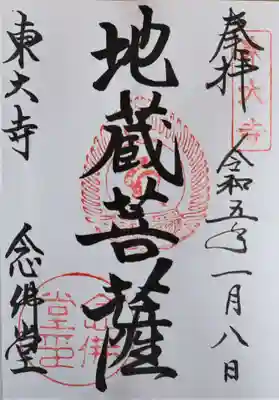 奉拝
東大寺
令和五年一月八日
地蔵菩薩
東大寺
念佛堂
念佛
堂印